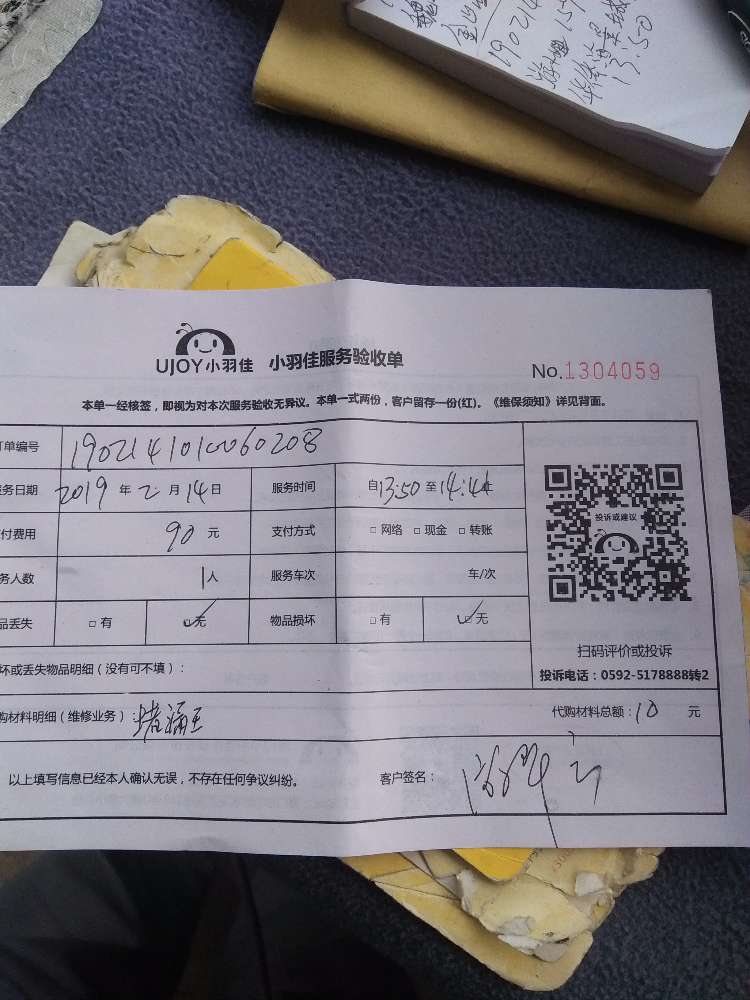 190214
13:50
UJOY小羽佳 小羽佳服务验收单
No.1304059
本单一经核签，即视为对本次服务验收无异议。本单一式两份，客户留存一份(红)。《维保须知》详见背面。
订单编号 1902141010060208
务日期 2019 年 2 月 14 日 服务时间 自13:50 至 14:44 止
付费用 90 元 支付方式 □ 网络 □ 现金 □ 转账
务人数 1人 服务车次 车/次
品丢失 □ 有 ☑无 物品损坏 □ 有 ☑无
投诉或建议
扫码评价或投诉
投诉电话：0592-5178888转2
坏或丢失物品明细（没有可不填）：
购材料明细（维修业务）： 代购材料总额：10 元
以上填写信息已经本人确认无误，不存在任何争议纠纷。 客户签名：